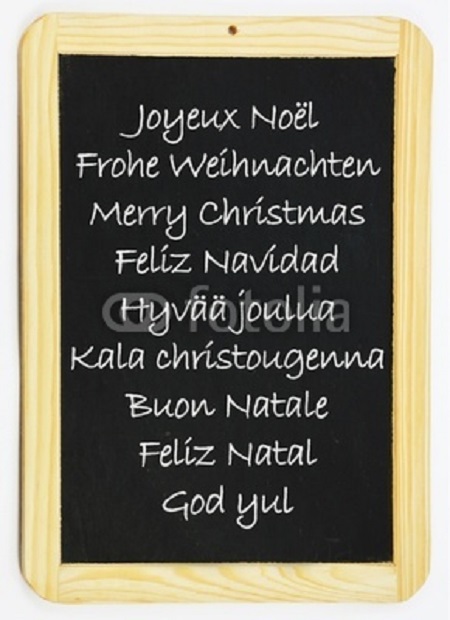 Joyeux Noël
Frohe Weihnachten
Merry Christmas
Felíz Navídad
Hyvää joulua
fotolia
Kala christougenna
Buon Natale
Felíz Natal
God yul